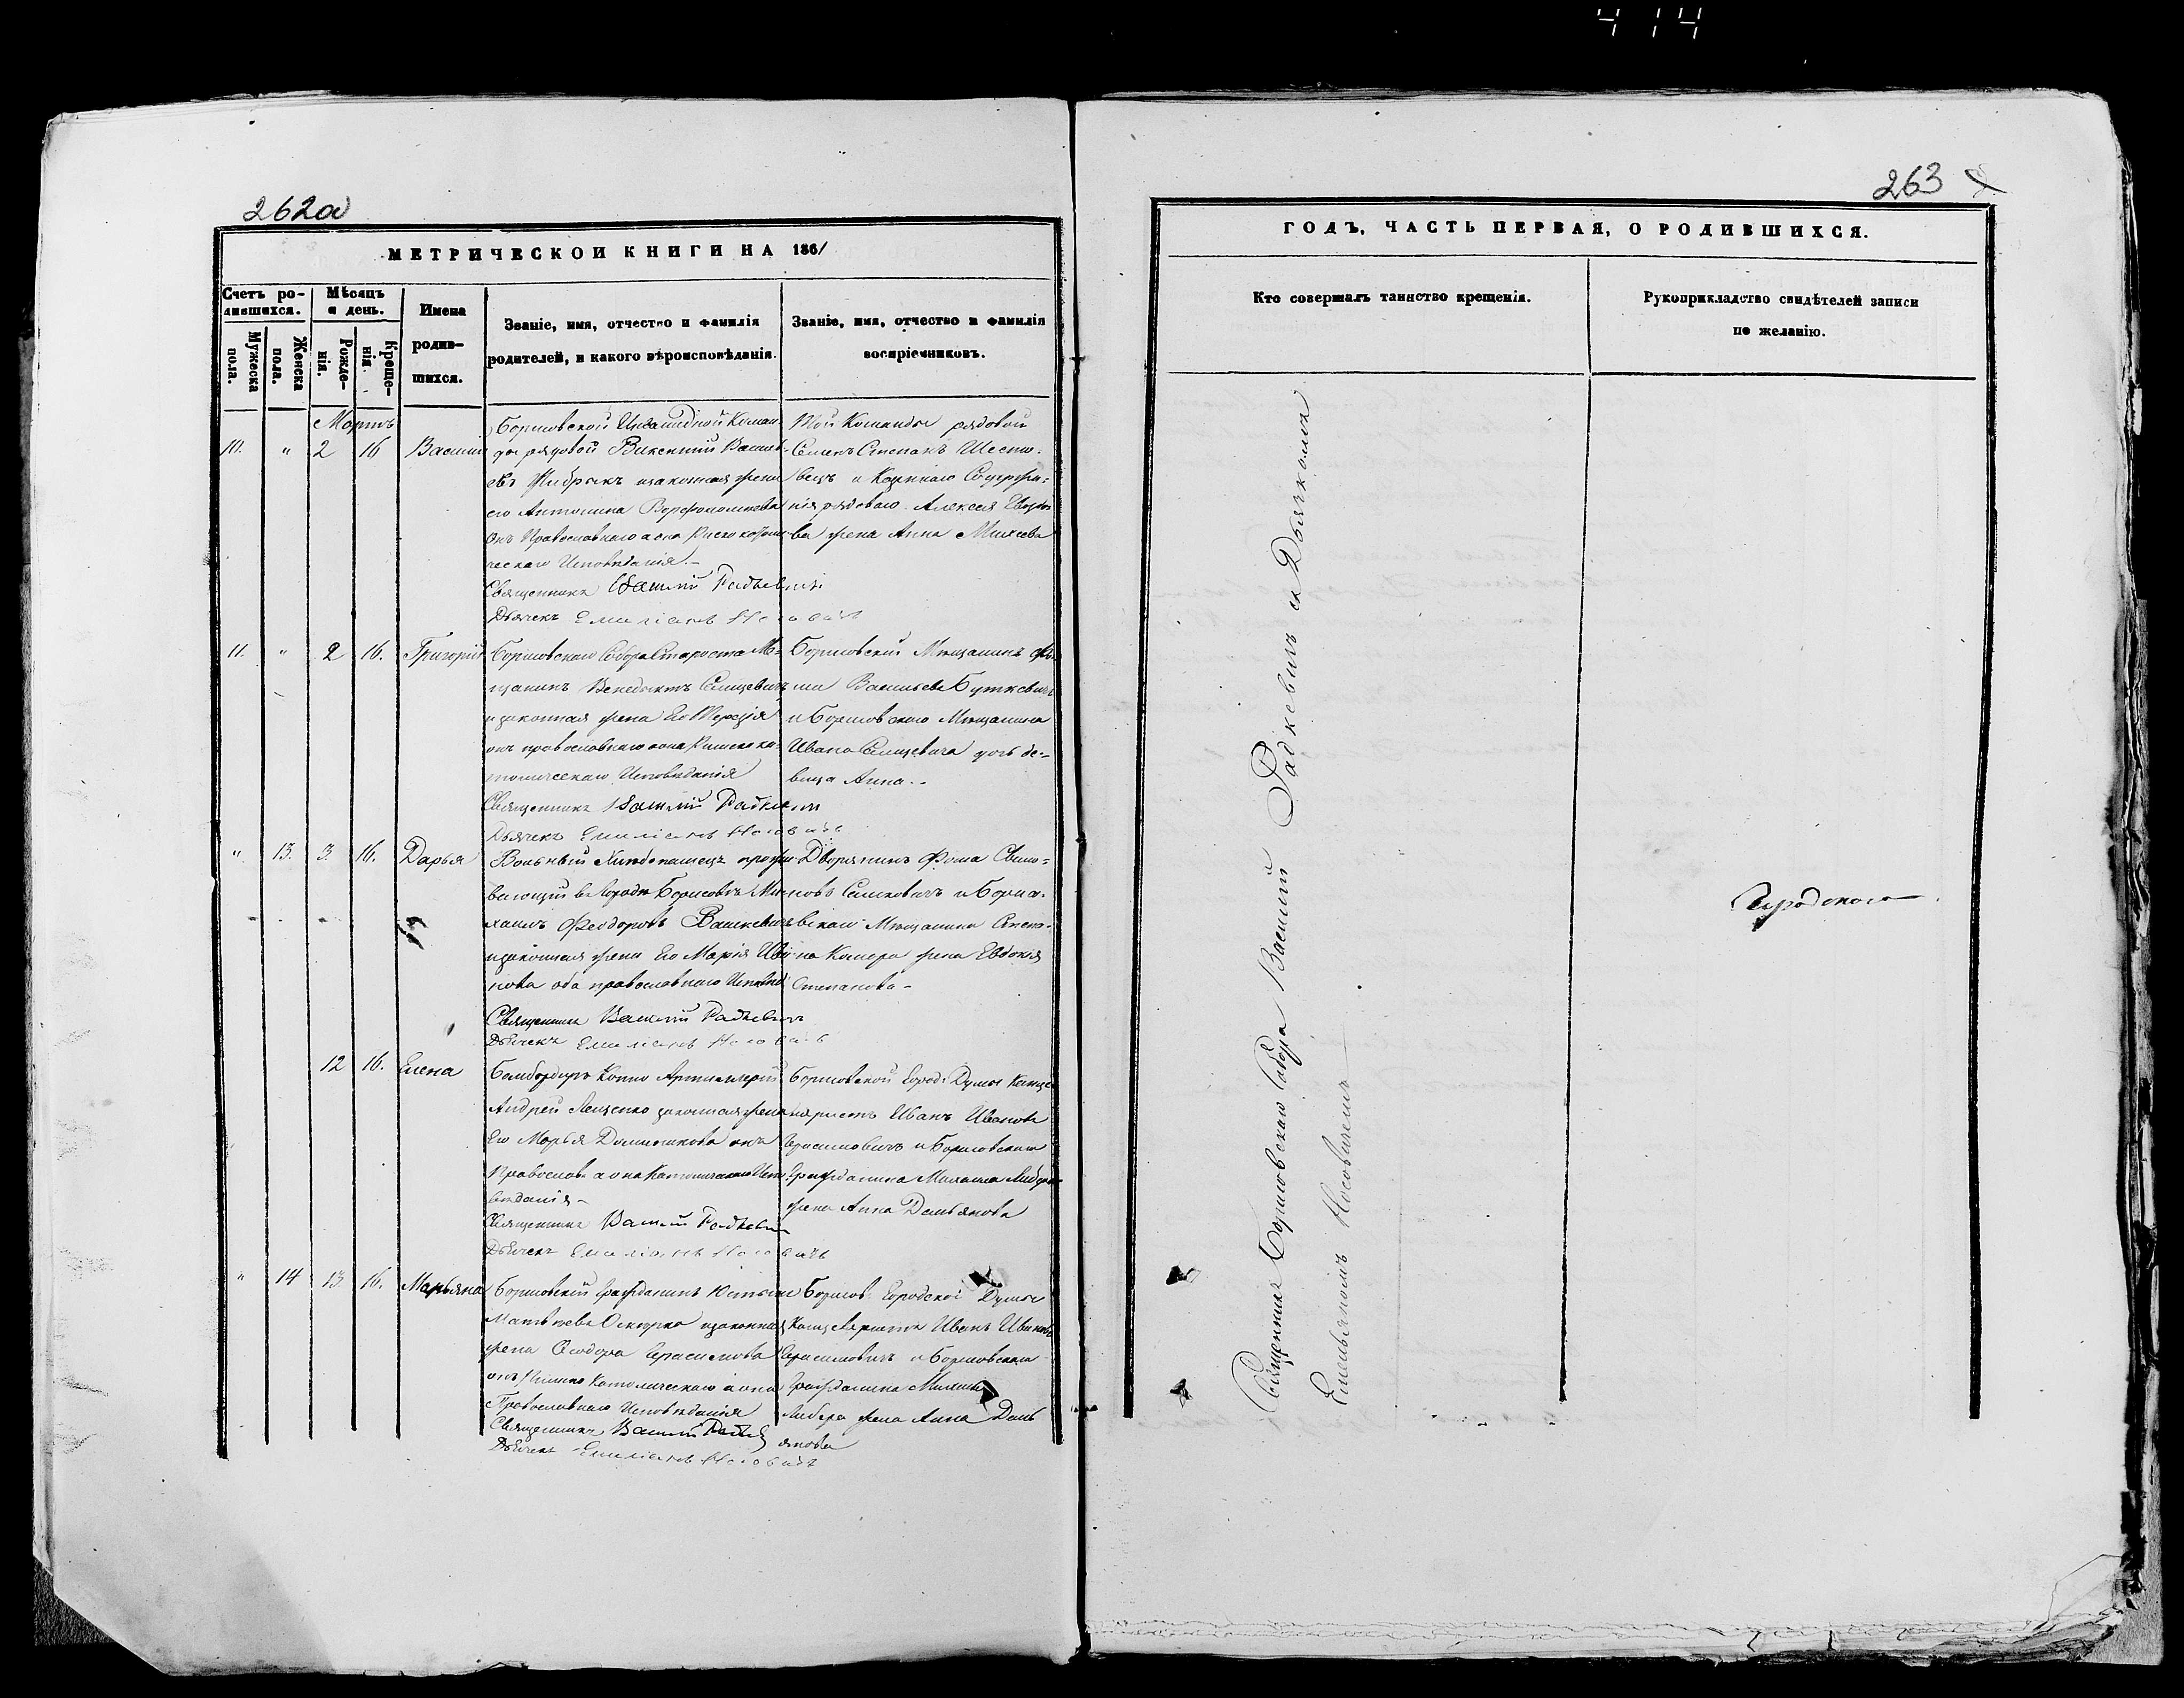 414
262а
МЕТРИЧЕСКОЙ КНИГИ НА 1861
Счетъ ро-
дившихся.
Мужеска
пола.
Женска
пола.
Мѣсяцъ
и день.
Рожде-
нія.
Креще-
нія
Имена
родив-
шихся.
Званіе, имя, отчество и фамилія
родителей, и какого вѣроисповѣданія.
Званіе, имя, отчество и фамилія
воспріемниковъ.
Мартъ
10. " 2 16 Василій
Борисовской Инвалидной Коман
ды рядовой Викентий Василь
евъ и законная жена
его Антонина Варфоломеева
Онъ Православнаго а она Римскокатоли
ческаго Исповѣданія.-
Священникъ Василій Радкевичъ
Дьячекъ Емиліанъ Носовичъ
Той Команды рядовой
Семенъ Степанъ Шесто-
вецъ и
рядоваго Алексея
ва жена Анна Михеева
11. " 2 16. Григорій
Борисовскаго Собора Староста Мѣ-
щанинъ Венедиктъ Селицевичъ
и законная жена Его Терезія
онъ православнаго а она Римско ка-
толическаго Исповѣданія
Священникъ Василій Радкевичъ
Дьячекъ Емиліанъ Носовичъ
Борисовский Мѣщанинъ Фо-
ма Васильевъ Буткевичъ
и Борисовскаго Мѣщанина
Ивана Селицевича дочь де-
вица Анна.-
" 13. 3. 16. Дарья
Вольный Хлѣбопашецъ прожи-
вающій въ Городѣ Борисовѣ Ми-
хаилъ Феодоровъ Вашкевичъ
и законная жена Его Марія Ива
нова оба православнаго Исповѣд
Священникъ Василій Радкевичъ
Дьячекъ Емиліанъ Носовичъ
Дворянинъ Фома Симо-
новъ Симковичъ и Борисо-
вскаго Мѣщанина Степа-
на Камера жена Евдокія
Степанова-
12 16. Елена
Бомбардиръ Конно Артиллеріи
Андрей Лещенко законная жена
Его Марья Доминикова онъ
Православ: а она Католическаго Испо
вѣданія-
Священникъ Василій Радкевичъ
Дьячекъ Емиліанъ Носовичъ
Борисовской Город: Думы Канце
ляристъ Иванъ Ивановъ
Герасимовичъ и Борисовскаго
Гражданина Михаила Либера
жена Анна Демьянова
" 14 13 16. Марьяна
Борисовскій Гражданинъ Юстинъ
Матвѣевъ Оскирко и законная
жена Феодора Герасимова
онъ Римско Католическаго а она
Православнаго Исповѣданія
Священникъ Василій Радкев
Дьячекъ Емиліанъ Носовичъ
Борисов: Городской Думы
Канцеляристъ Иванъ Ивановъ
Герасимовичъ и Борисовскаго
Гражданина Михаила
Либера жена Анна Демь
янова
263
ГОДЪ, ЧАСТЬ ПЕРВАЯ, О РОДИВШИХСЯ.
Кто совершалъ таинство крещенія.
Рукоприкладство свидѣтелей записи
по желанію.
Священникъ Борисовскаго Собора Василий Радкевичъ съ Дьячкомъ
Емельяномъ Носовичемъ
Городского